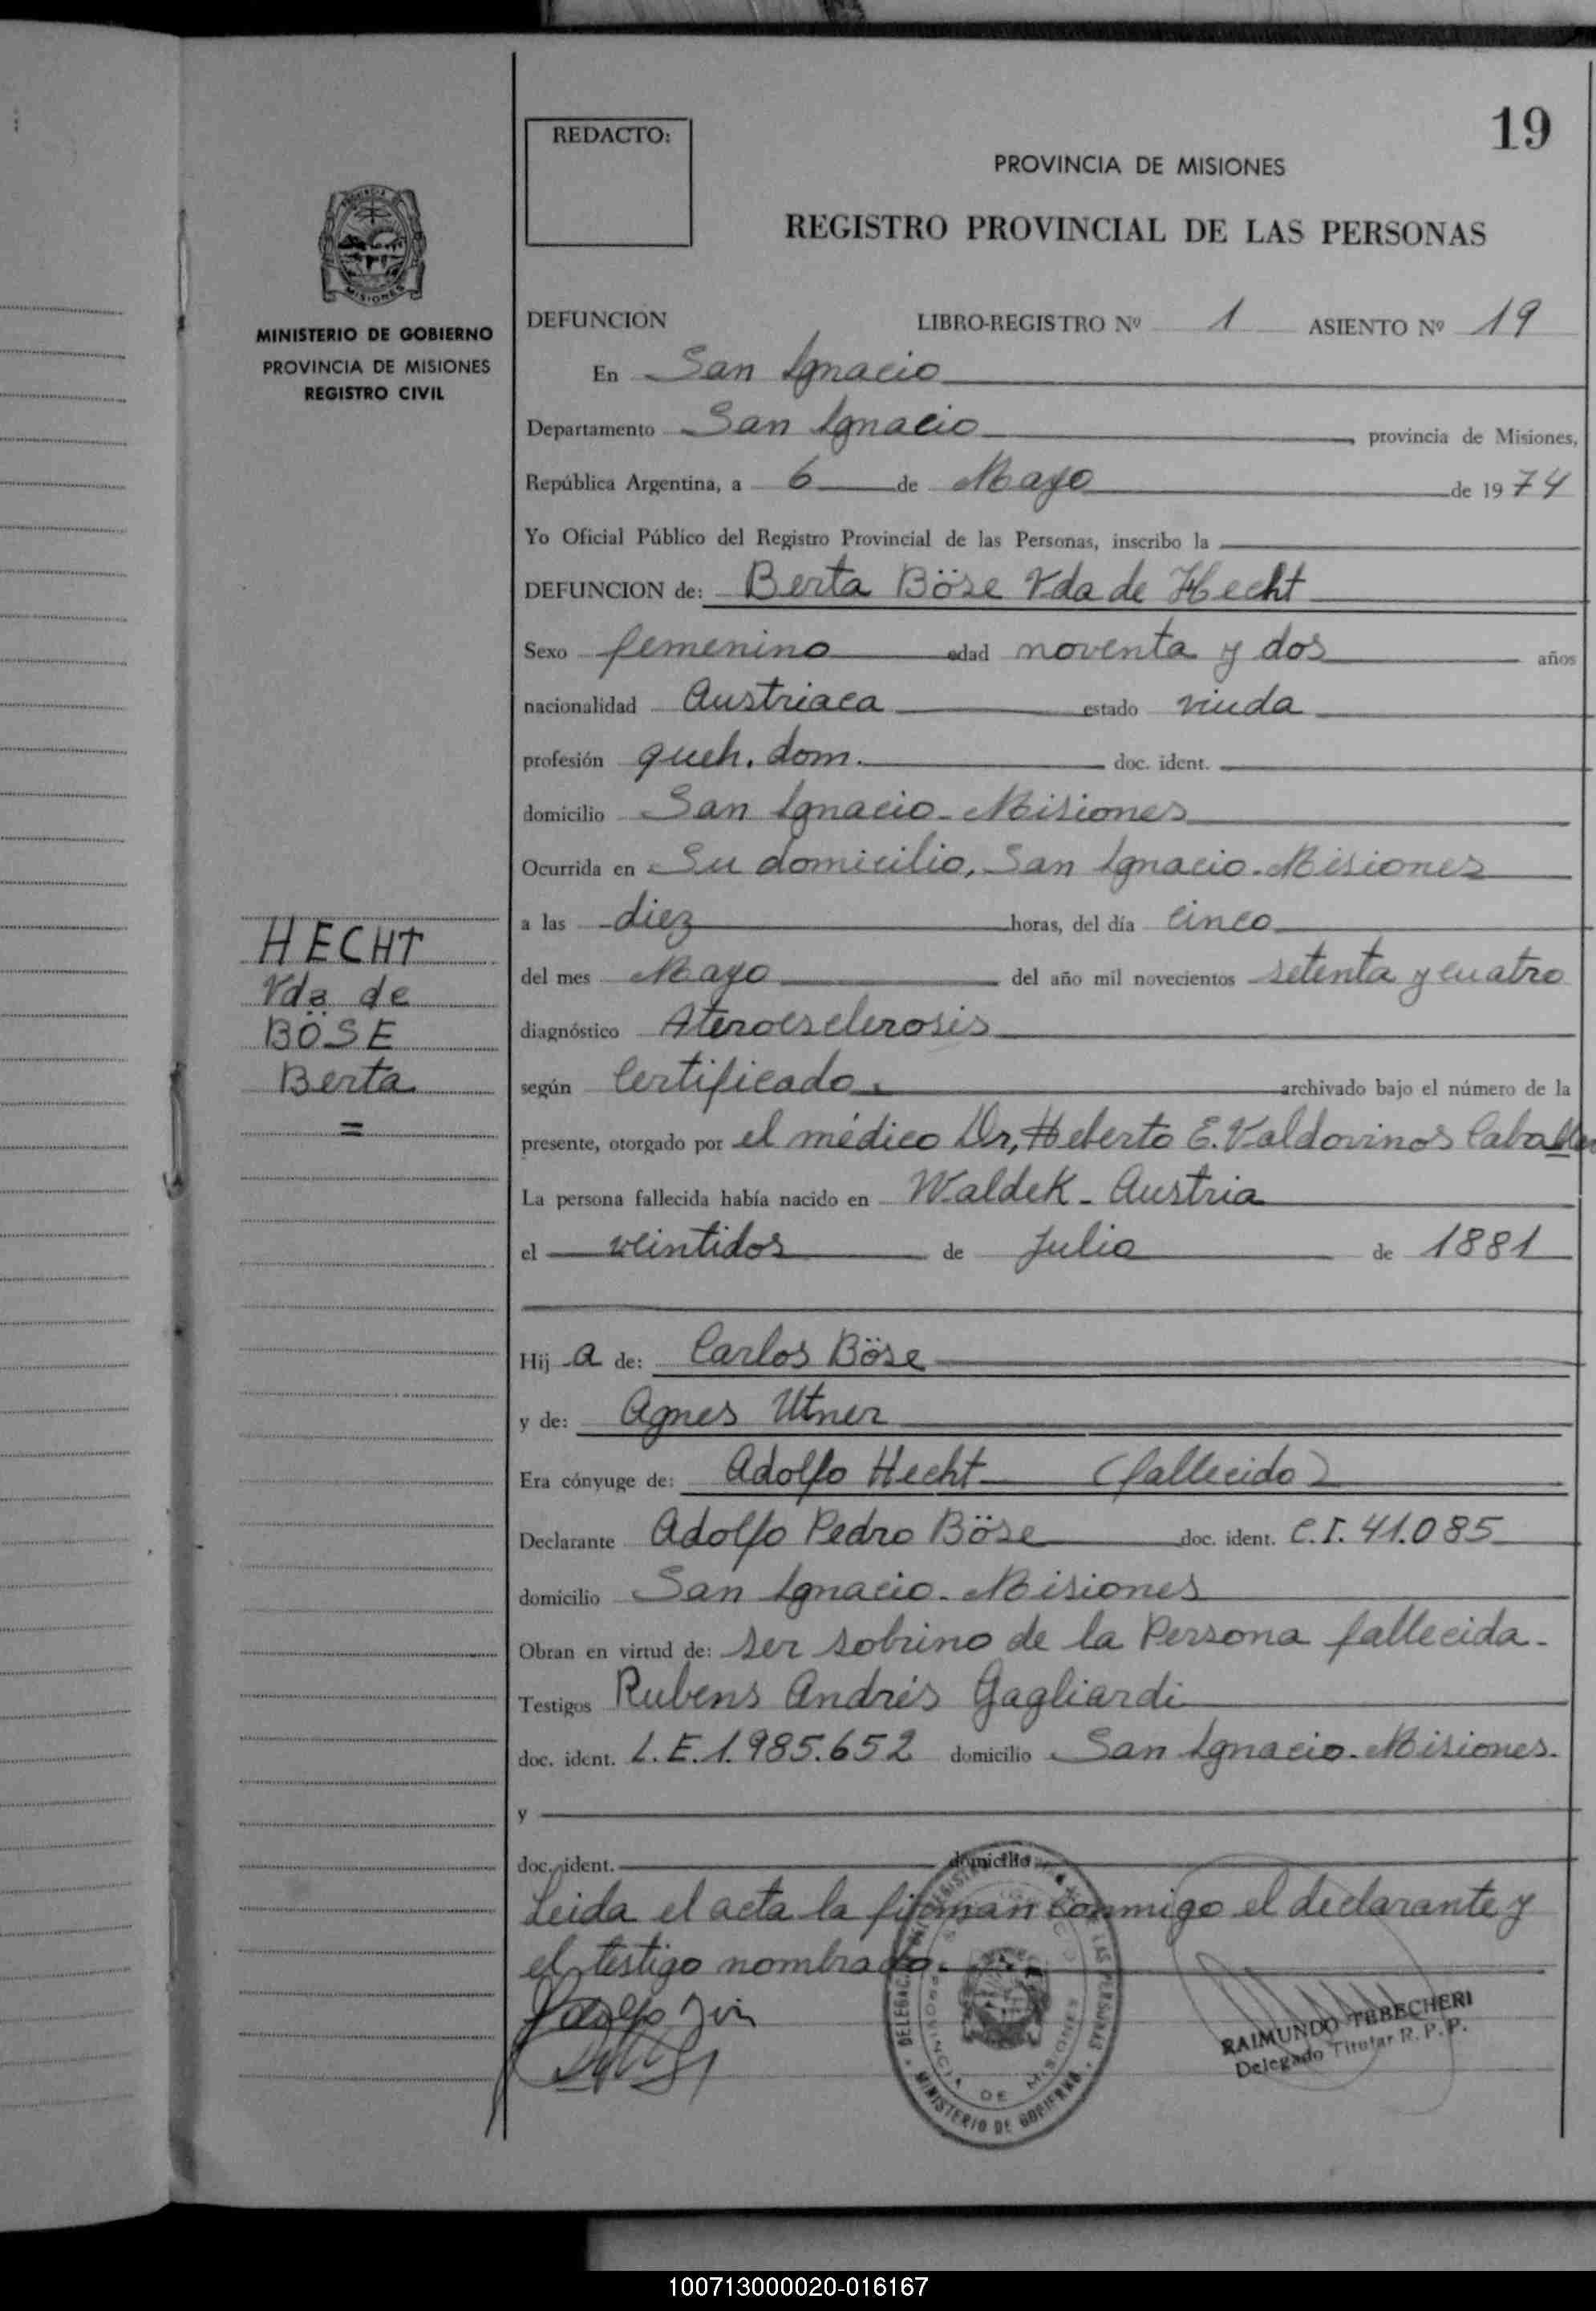 19
REDACTO:
PROVINCIA DE MISIONES
REGISTRO PROVINCIAL DE LAS PERSONAS
MISIONES
MINISTERIO DE GOBIERNO
PROVINCIA DE MISIONES
REGISTRO CIVIL
DEFUNCION LIBRO-REGISTRO Nº 1 ASIENTO Nº 19
En San Ignacio
Departamento San Ignacio, provincia de Misiones,
República Argentina, a 6 de Mayo de 1974
Yo Oficial Público del Registro Provincial de las Personas, inscribo la
DEFUNCION de: Berta Böse Vda de Hecht
Sexo femenino edad noventa y dos años
nacionalidad Austriaca estado viuda
profesión queh. dom. doc. ident.
domicilio San Ignacio - Misiones
Ocurrida en Su domicilio, San Ignacio - Misiones
a las diez horas, del día cinco
del mes Mayo del año mil novecientos setenta y cuatro
diagnóstico Ateroesclerosis
según Certificado. archivado bajo el número de la
presente, otorgado por el médico Dr, Heberto E. Valdovinos Caballer
La persona fallecida había nacido en Waldek - Austria
el veintidos de Julio de 1881
HECHT
Vda de
BÖSE
Berta
=
Hij a de: Carlos Böse
y de: Agnes Utner
Era cónyuge de: Adolfo Hecht (fallecido)
Declarante Adolfo Pedro Böse doc. ident. C.I. 41.085
domicilio San Ignacio - Misiones
Obran en virtud de: ser sobrino de la Persona fallecida -
Testigos Rubens Andrés Gagliardi
doc. ident. L.E. 1.985.652 domicilio San Ignacio - Misiones.
y
doc. ident. domicilio
Leida el acta la firman conmigo el declarante y
el testigo nombrado.
RAIMUNDO TEBECHERI
Delegado Titular R. P. P.
PROVINCIA DE MISIONES
MINISTERIO DE GOBIERNO
100713000020-016167